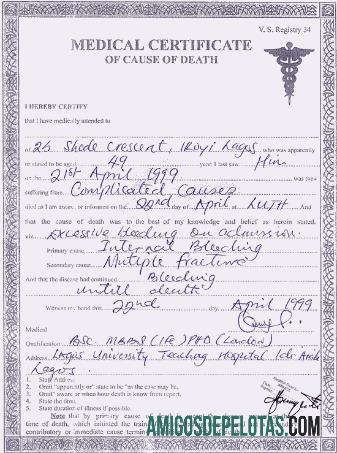 V. S. Registry 34
MEDICAL CERTIFICATE
OF CAUSE OF DEATH
I HEREBY CERTIFY
that I have medically attended to
of 26 Shode Crescent, Ikoyi Lagos who was apparently
or stated to be aged 49 year: I last saw Him
on the 21st April 1999 was then
suffering from Complicated Causes
died as I am aware, or informed on the 22nd day of April at LUTH And
that the cause of death was to the best of my knowledge and belief as herein stated.
viz Excessive bleeding on admission.
Primary cause Internal Bleeding
Secondary cause Mutiple fracture
And that the disease had continued Bleeding
untill death
Witness my hand this 22nd day April 1999
Medical
Qualification BSC. MBBS (IFE) PHD (London)
Address Lagos University Teaching Hospital Idi Araba
Lagos.
1. State Address.
2. Omit "apparently" or state to be "as the case may be.
3. Omit aware or when hour death is know from report.
4. State the time.
5. State duration of illness if possible.
Note that by primary cause
time of death, which initiated the train
contributory or immediate cause
AMIGOSDEPELOTAS.COM